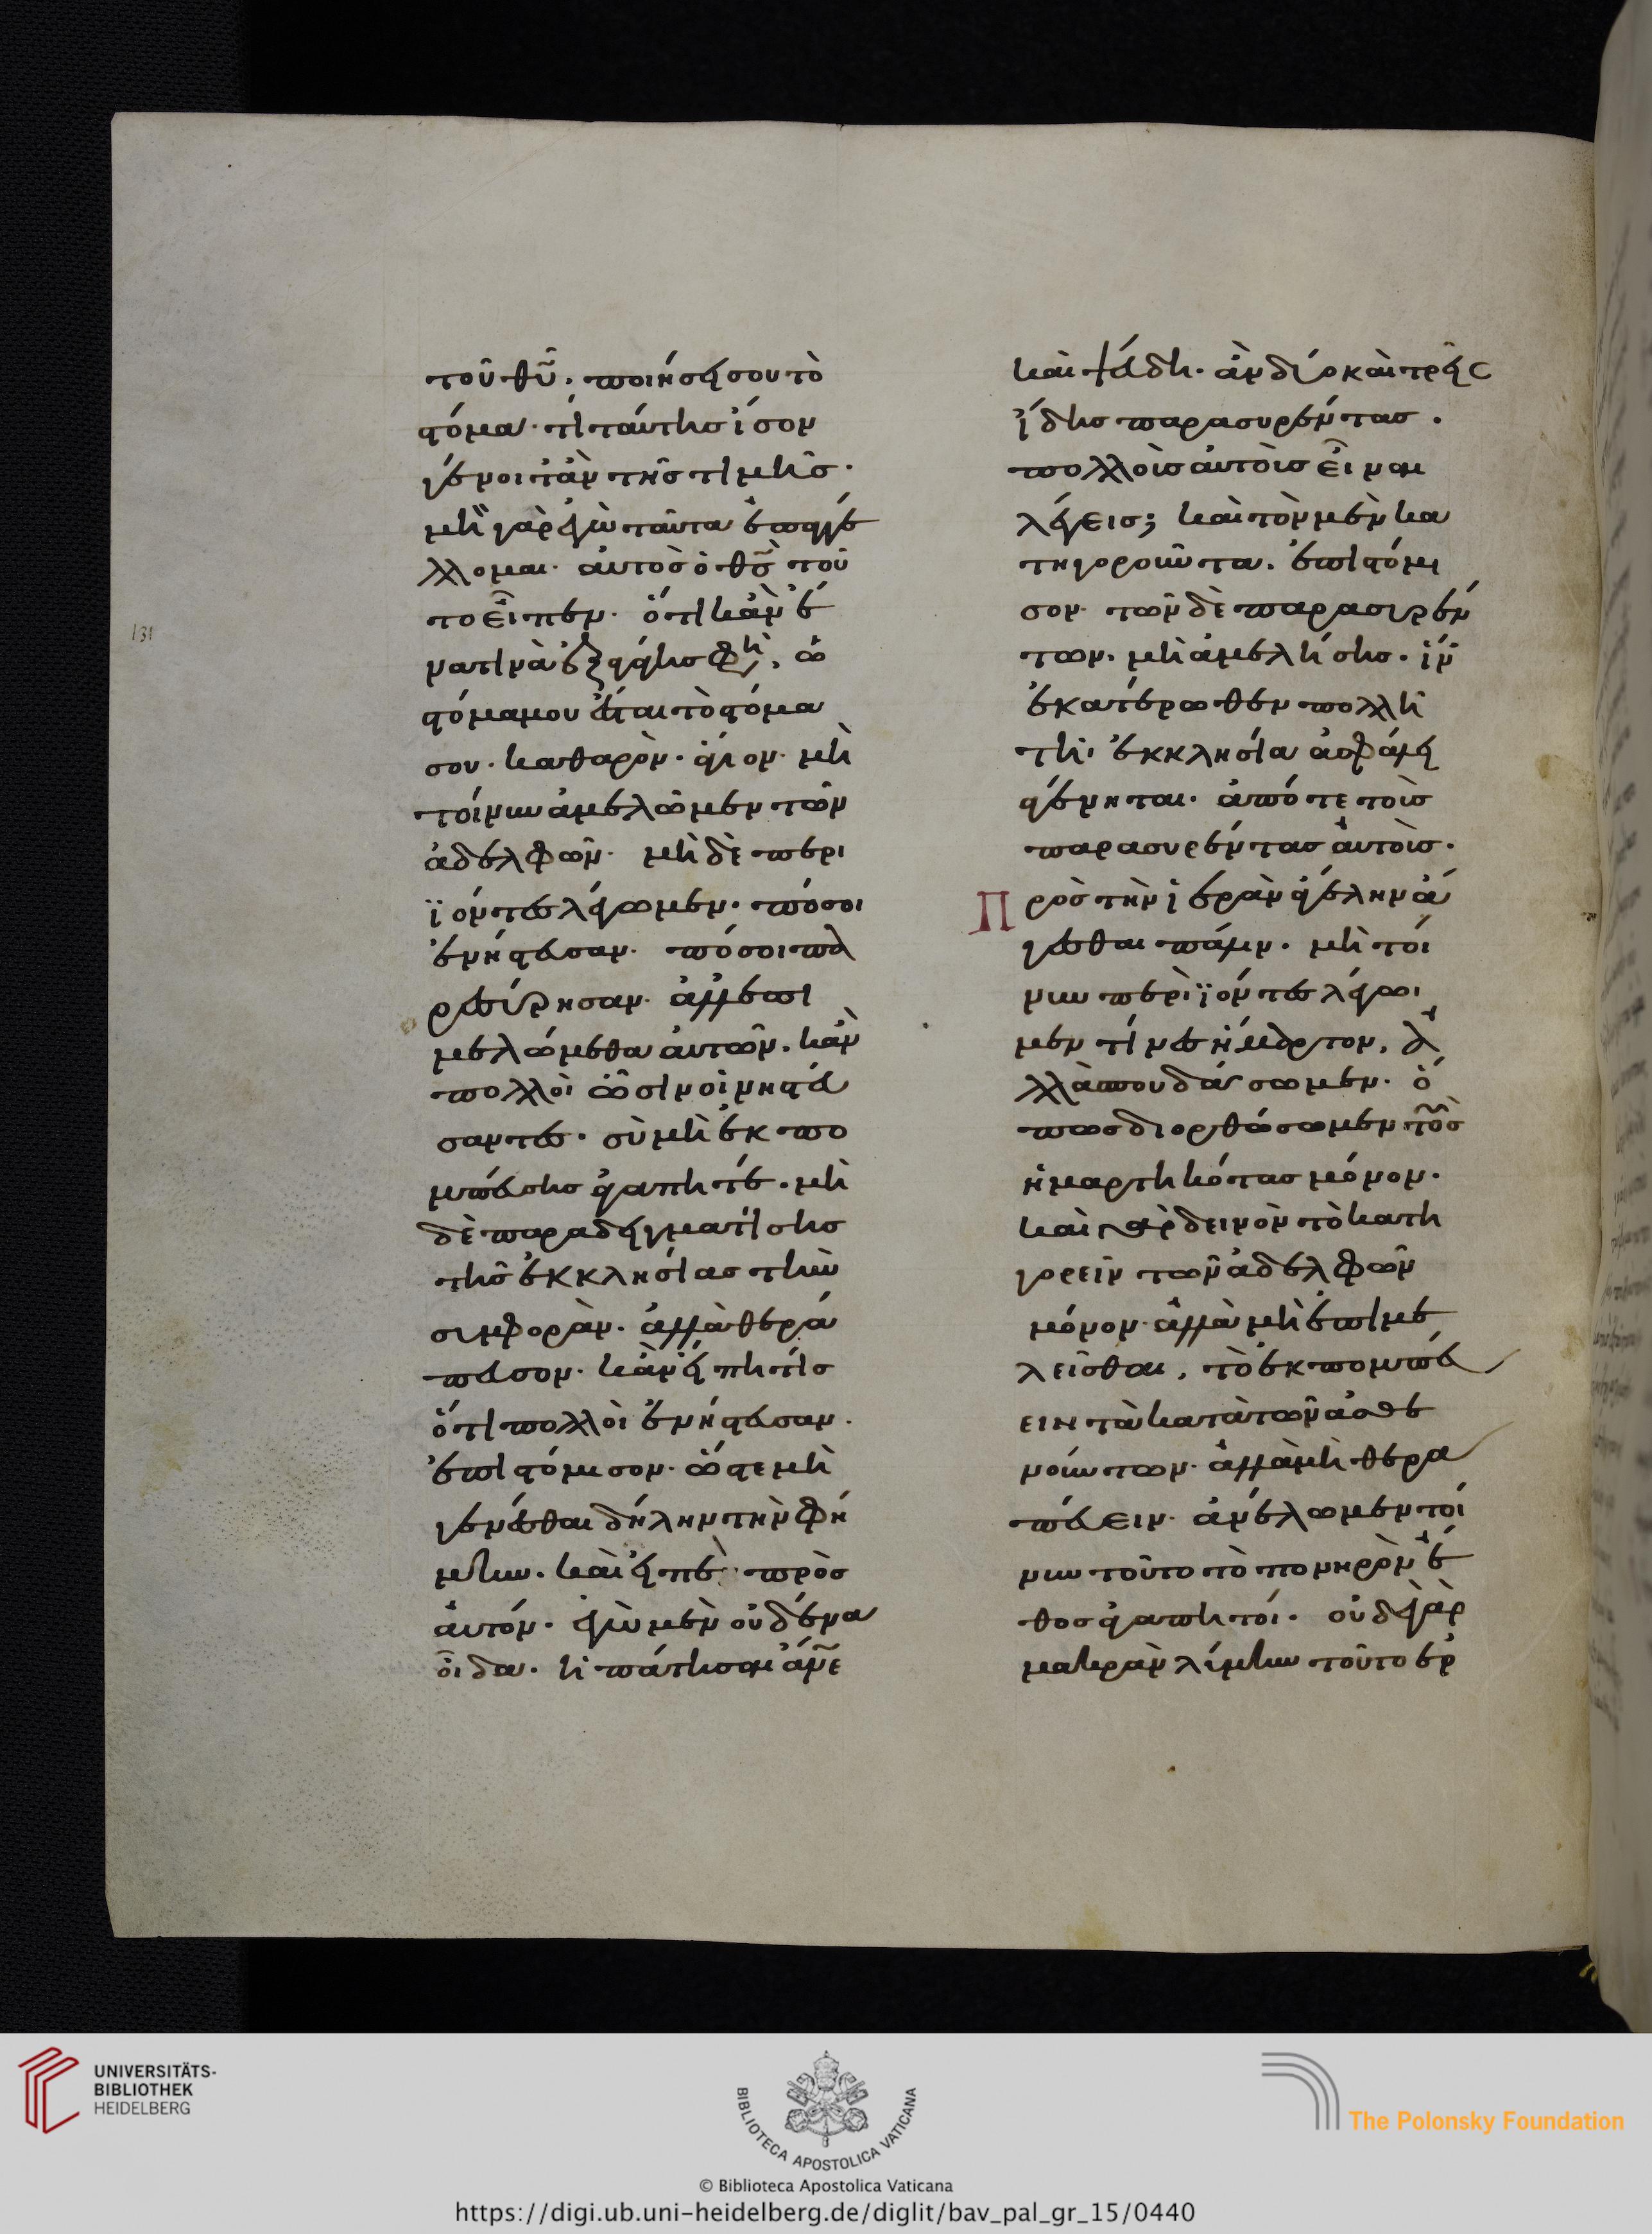 τοῦ θῦ, ποιήσει σου τὸ
στόμα. τί ταύτης ἴσον
γένοιτ' ἂν τῆς τιμῆς.
μὴ γὰρ ἐγὼ ταῦτα ἐπαγγέ
λλομαι. αὐτὸς ὁ θς τοῦ
το εἶπεν. ὅτι κἂν ἕ
να τινὰ ἐξαγάγης φη, ὡ
στόμα μου ἔσται τὸ στόμα
σου. καθαρὸν. ἅγιον. μὴ
τοίνυν ἀμελῶμεν τῶν
ἀδελφῶν. μὴ δὲ περι
ϊόντες λέγωμεν. πόσοι
ἐνήστευσαν. πόσοι πα
ρεσύρησαν. ἀλλ' ἐπι
μελώμεθα αὐτῶν. κἂν
πολλοὶ ὦσιν οἱ νηστεύ
σαντες. σὺ μὴ ἐκπο
μπεύσης ἀγαπητέ. μὴ
δὲ παραδειγματίσης
τῆς ἐκκλησίας τὴν
συμφορὰν. ἀλλὰ θερά
πευσον. κἂν εἴπη τίς
ὅτι πολλοὶ ἐνήστευσαν.
ἐπιστόμισον. ὥστε μὴ
γενέσθαι δήλην τὴν φή
μην. καὶ εἰπὲ πρὸς
αὐτόν. ἐγὼ μὲν οὐδένα
οἶδα. ἠπάτησαι ἄνε
καὶ ψεύδη. ἂν δύο καὶ τρεῖς
ἴδης παρασυρέντας.
πολλοὺς αὐτοὺς εἶναι
λέγεις; καὶ τὸν μὲν κα
τηγοροῦντα. ἐπιστόμι
σον. τῶν δὲ παρασυρέν
των. μὴ ἀμελήσης. ἵν'
ἑκατέρωθεν πολλὴ
τῆ ἐκκλησία ἀσφάλει
γένηται. ἀπό τε τοῦ
παρασυρέντας αὐτοὺς.
Πρὸς τὴν ἱερὰν ἀγέλην ἄ
γεσθαι πάλιν. μὴ τοί
νυν περιϊόντες λέγωι
μεν τίνες ἥμαρτον, ἀ
λλὰ σπουδάσωμεν. ὅ
πως διορθώσωμεν τοὺς
ἡμαρτηκότας μόνον.
καὶ γὰρ δεινὸν τὸ κατη
γορεῖν τῶν ἀδελφῶν
μόνον. ἀλλὰ μὴ ἐπιμε
λεῖσθαι, τὸ ἐκπομπεύ
ειν τὰ κατὰ τῶν ἀσθε
νούντων. ἀλλὰ μὴ θερα
πεύειν. ἀνέλωμεν τοί
νυν τοῦτο τὸ πονηρὸν ἔ
θος ἀγαπητοί. οὐδὲ γὰρ
μακρὰν λύμην τοῦτο ἐρ
131
UNIVERSITÄTS-
BIBLIOTHEK
HEIDELBERG
BIBLIOTECA APOSTOLICA VATICANA
The Polonsky Foundation
© Biblioteca Apostolica Vaticana
https://digi.ub.uni-heidelberg.de/diglit/bav_pal_gr_15/0440